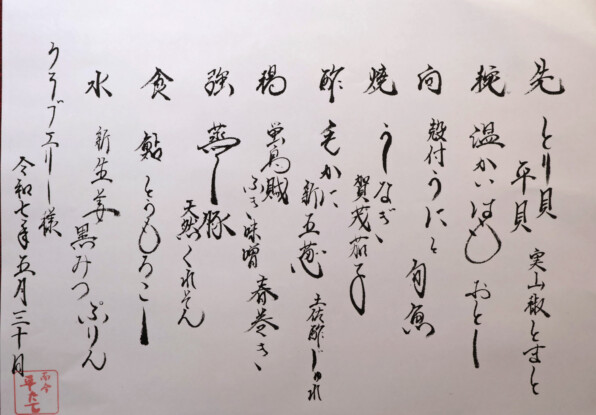 先 とり貝
平貝 実山椒とすもと
椀 温かいはも おとし
向 殻付うにと 旬魚
焼 うなぎ、
賀茂茄子
酢 毛かに
新玉葱 土佐酢じゅれ
揚 蛍烏賊 春巻き、
ふき味噌
強 蒸し豚
天然くれそん
食 鮎とうもろこし
水 新生姜 黒みつぷりん
うろブエリー様
令和七年五月三十日